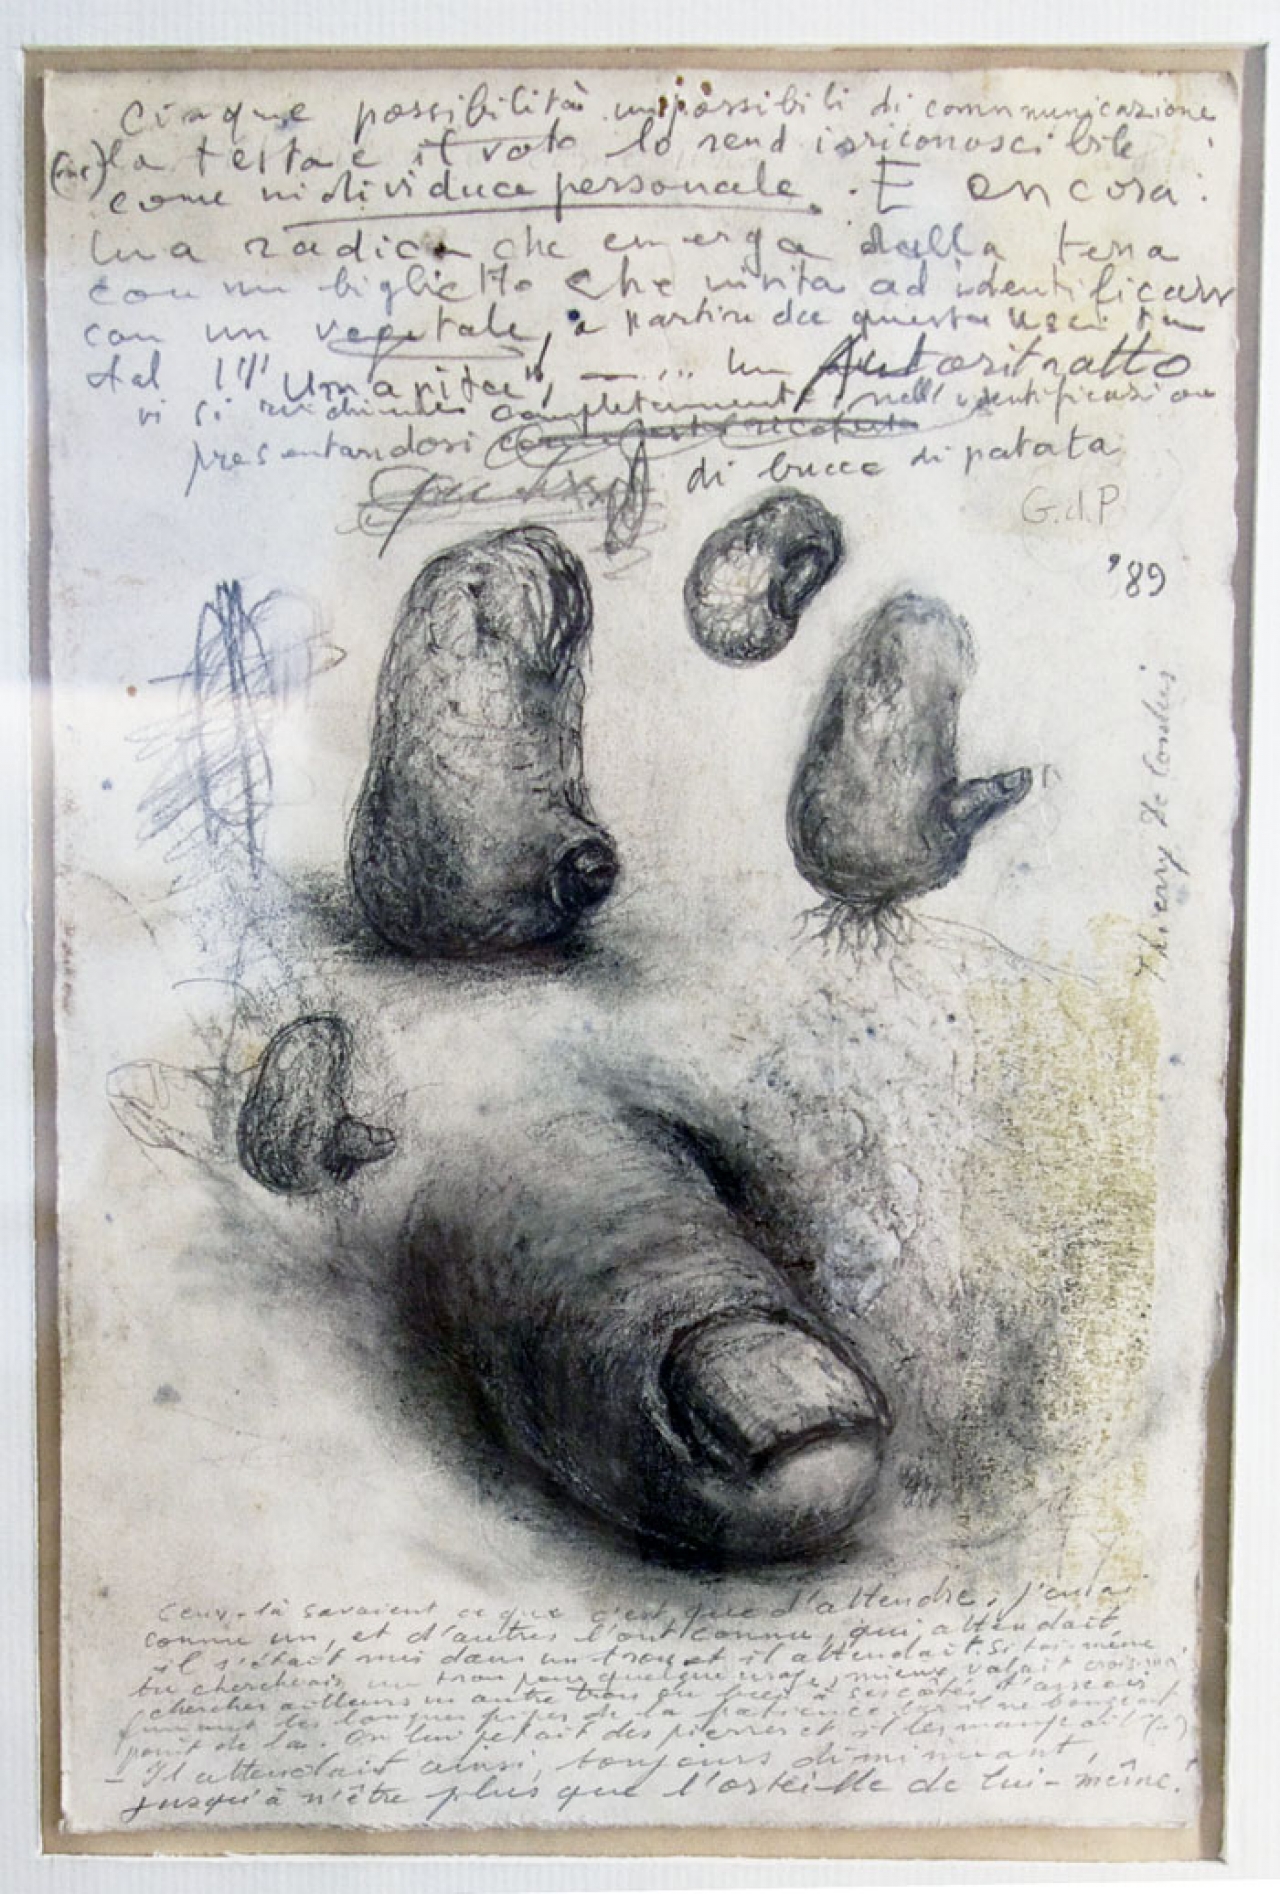 Cinque possibilità impossibili di communicazione
la testa e il voto lo rend irriconoscibile
come individuo personale. E ancora:
una radice che emerge dalla terra
con un biglietto che invita ad identificarsi
con un vegetale, a partire da questa
dal "Umanità", — ... un Autoritratto
vi si completamente nell'identificazione
presentandosi
di bucce di patata
G.d.P
'89
Thierry De Cordier
Ceux-là savaient ce que c'est que d'attendre. J'en ai
connu un, et d'autres l'ont connu, qui attendait.
il s'était mis dans un trou et il attendait. Si toi-même
tu cherchais un trou pour quelque usage, mieux valait crois-moi
chercher ailleurs un autre trou ou bien à ses côtés t'asseoir
fumant les longues pipes de la patience. Car il ne bougeait
point de là. On lui jetait des pierres et il les mangeait (..)
- Il attendait ainsi, toujours diminuant,
jusqu'à n'être plus que l'orteil de lui-même.